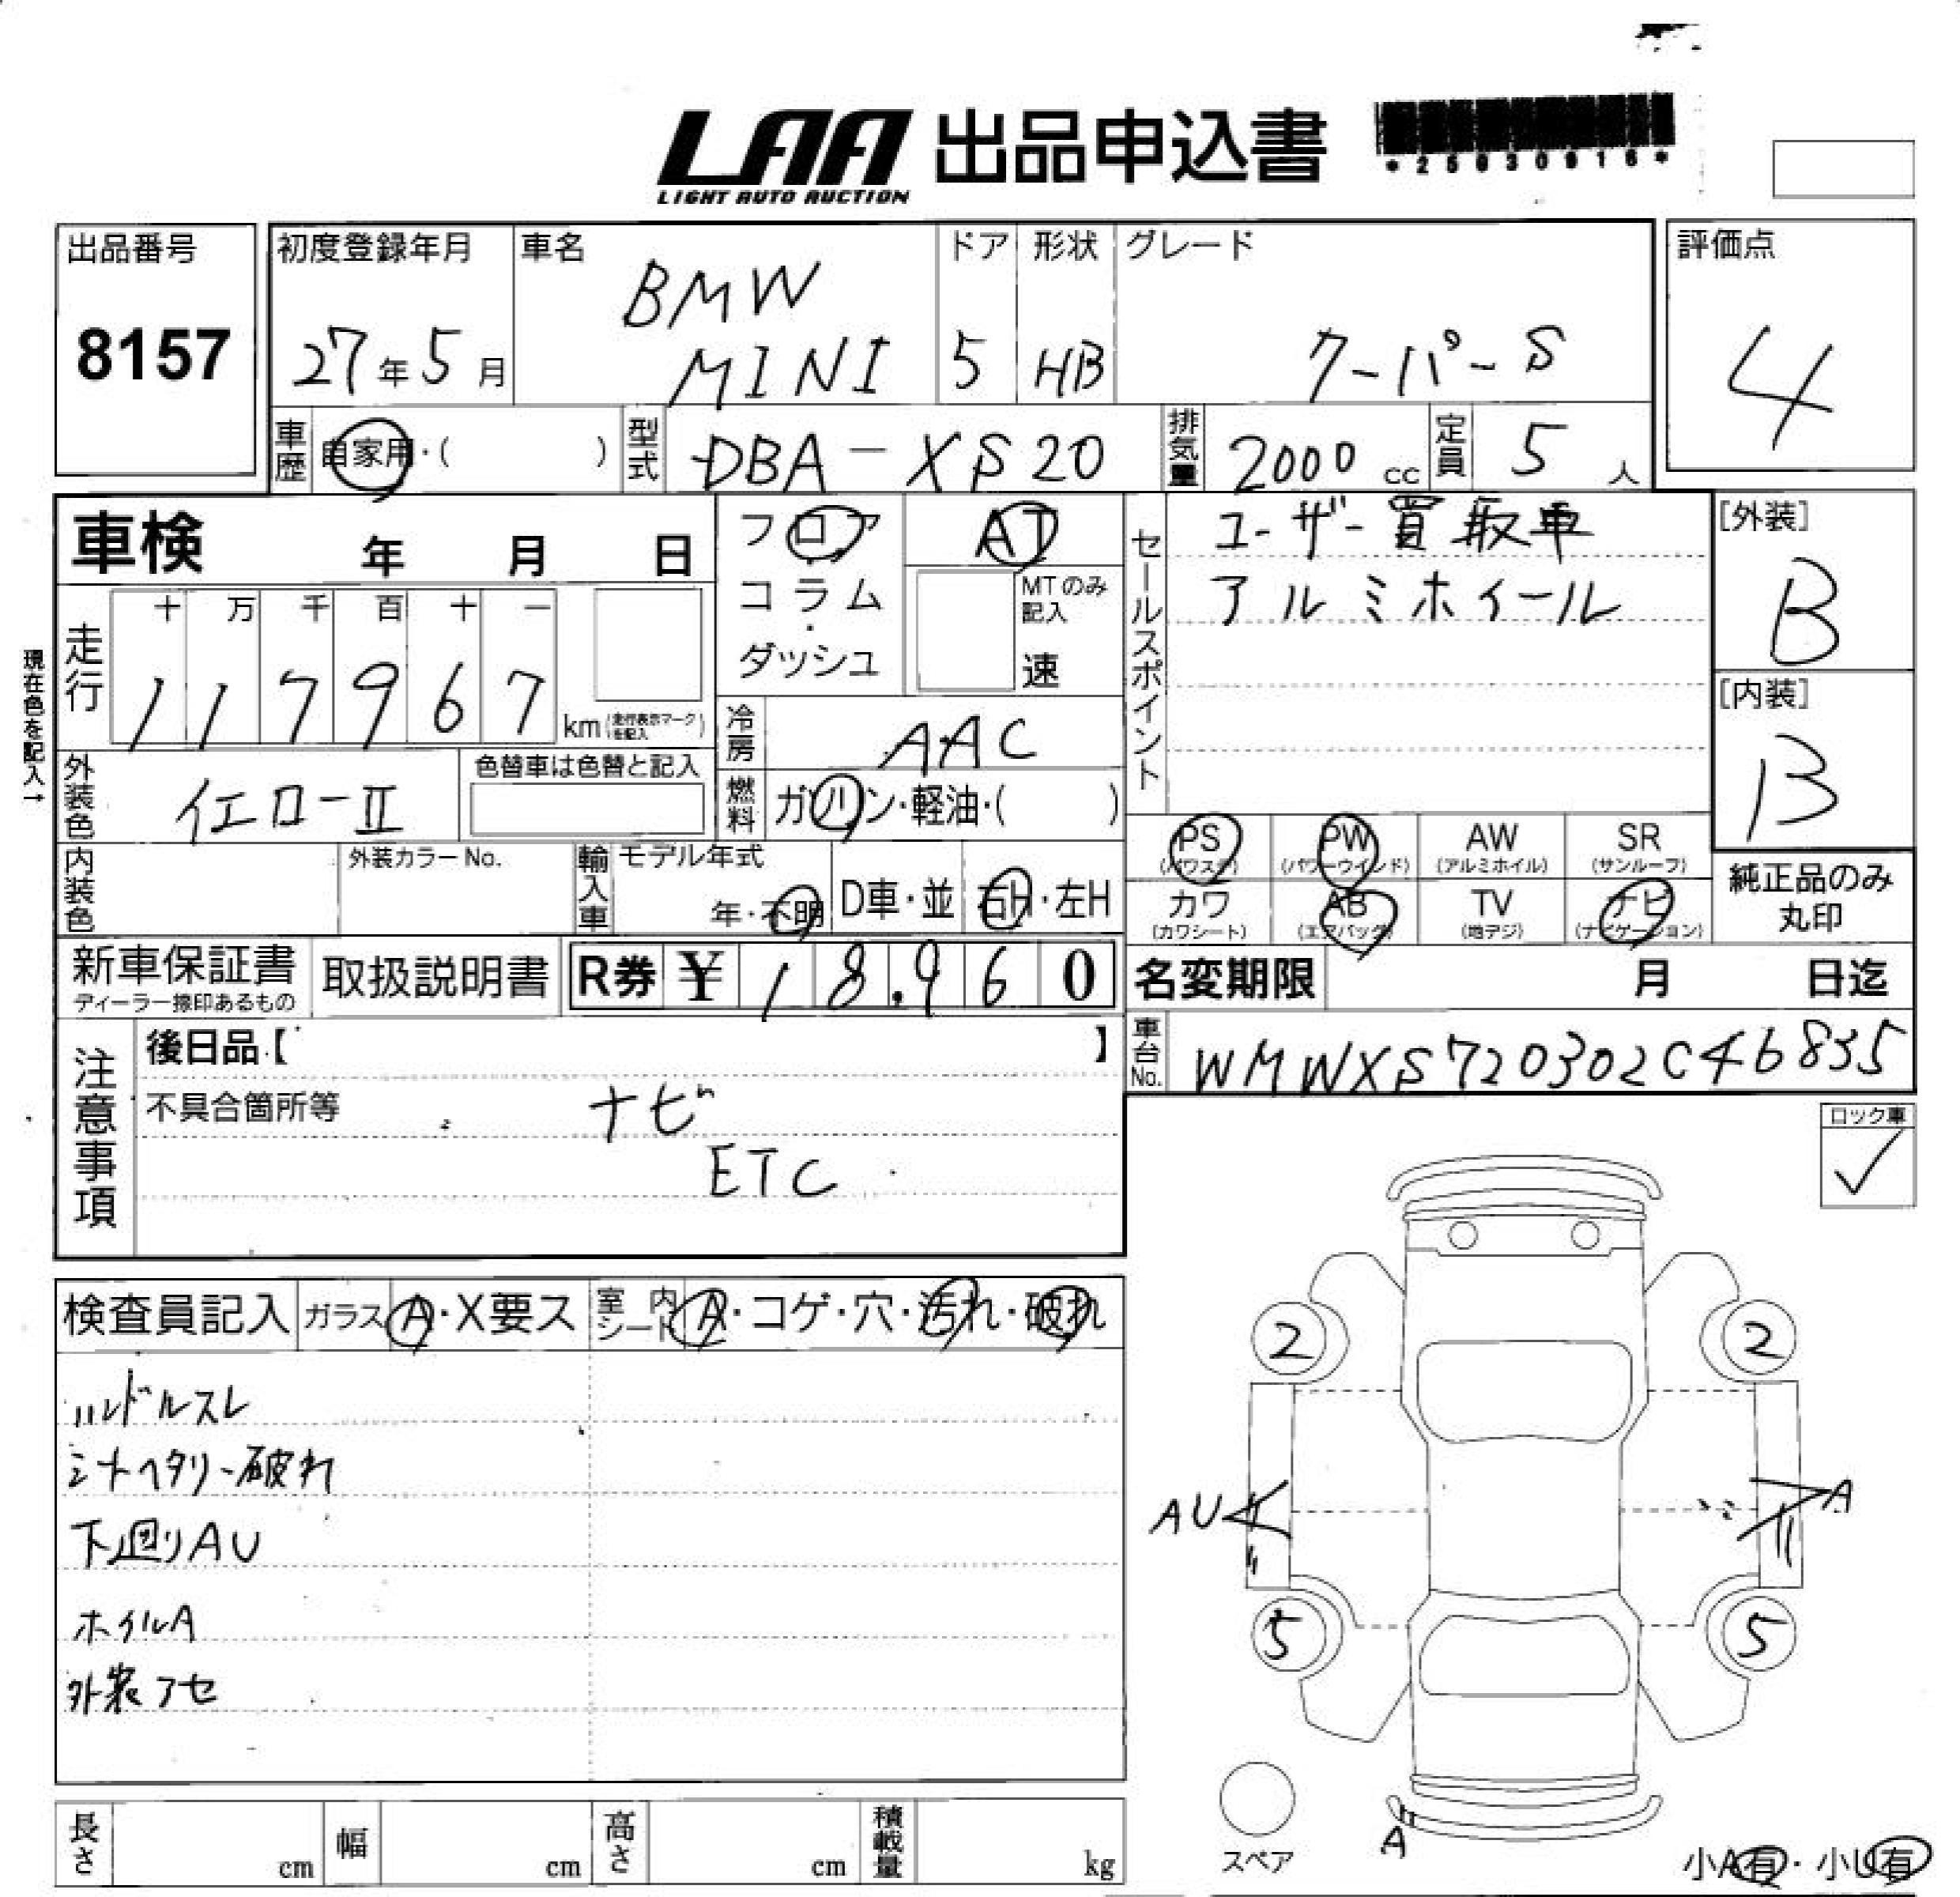 LAA 出品申込書
LIGHT AUTO AUCTION
*25030916*
出品番号
8157
初度登録年月
27年5月
車名
BMW
MINI
ドア
5
形状
HB
グレード
クーパーS
評価点
4
車歴
自家用・( )
型式
DBA-XS20
排気量
2000 cc
定員
5 人
車検 年 月 日
フロア
コラム・
ダッシュ
AT
MTのみ記入
速
セールスポイント
ユーザー買取車
アルミホイール
[外装]
B
[内装]
B
現在色を記入→
走行
十 万 千 百 十 一
117967 km(走行表示マークを記入)
冷房
AAC
外装色
イエローII
色替車は色替と記入
燃料
ガソリン・軽油・( )
PS
(パワステ)
PW
(パワーウインド)
AW
(アルミホイル)
SR
(サンルーフ)
内装色
外装カラーNo.
輸入車
モデル年式
年・不明
D車・並
右H・左H
カワ
(カワシート)
AB
(エアバッグ)
TV
(地デジ)
ナビ
(ナビゲーション)
純正品のみ
丸印
新車保証書
ディーラー捺印あるもの
取扱説明書
R券 ¥ 18,960
名変期限 月 日迄
車台No.
WMWXS720302C46835
注意事項
後日品【 】
不具合箇所等
ナビ
ETC
ロック車
✓
検査員記入
ガラス A・X要ス
室内シート A・コゲ・穴・汚れ・破れ
ハンドルスレ
シートヘタリー破れ
下廻りAU
ホイルA
外装アセ
2
2
AU
A
5
5
A
スペア
小A有・小U有
長さ cm
幅 cm
高さ cm
積載量 kg